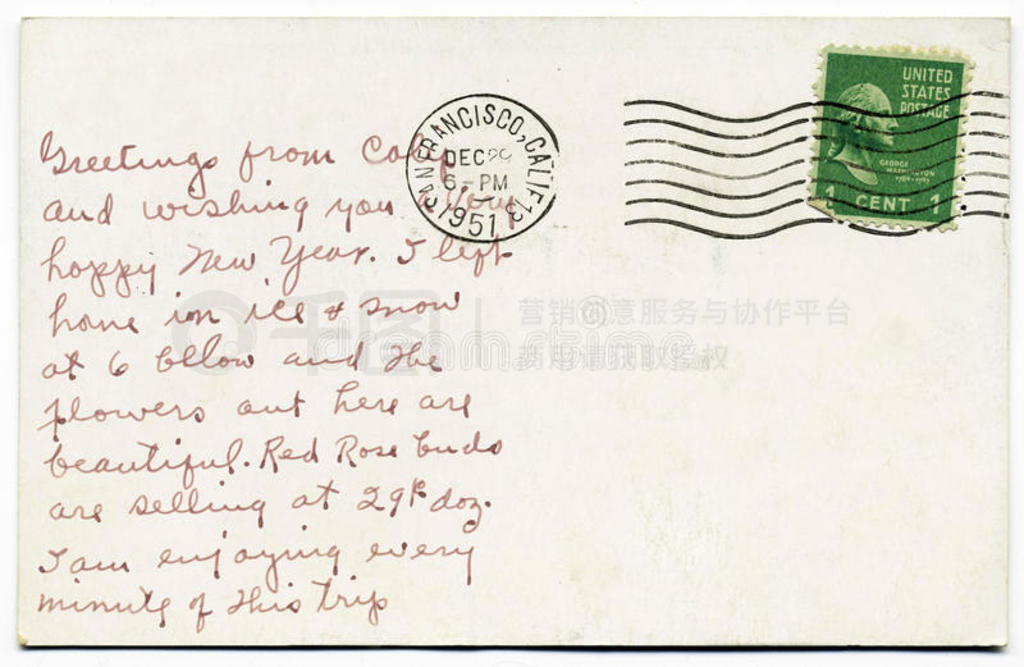 Greetings from Calif
and wishing you a Very
happy New Year. I left
home in ice & snow
at 6 bllow and the
flowers out here are
beautiful. Red Rose buds
are selling at 29¢ doz.
I am enjoying every
minute of this trip
SAN FRANCISCO, CALIF. 13
DEC 29
6 - PM
1951
UNITED
STATES
POSTAGE
GEORGE
WASHINGTON
1 CENT 1
千图
营销创意服务与协作平台
商用请获取授权
dreamstime